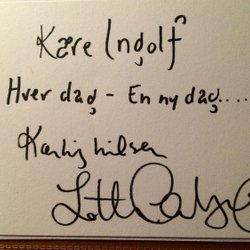 Kære Ingolf
Hver dag - En ny dag....
Kærlig hilsen